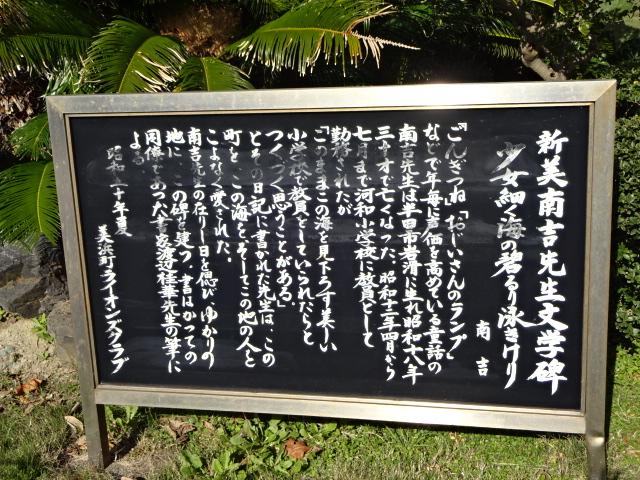 新美南吉先生文学碑
少女細く海の碧るり泳きけり
南吉
「ごんぎつね」「おじいさんのランプ」
などで年毎に声価を高めている童話の
南吉先生は半田市岩滑に生れ昭和十八年
三十才で亡くなった。昭和十二年四月から
七月まで河和小学校に教員として
勤務されたが
「このままこの海を見下ろす美しい
小学校で教員をしていられたらと
つくづく思うことがある」
とその日記に書かれた先生は、この
町を、この海を、そしてこの地の人と
こよなく愛された。
南吉先生の在りし日を偲び、ゆかりの
地に、この碑を建つ。書はかつての
同僚であった書家渡辺桂華先生の筆に
よる
昭和 十年夏
美浜町ライオンズクラブ